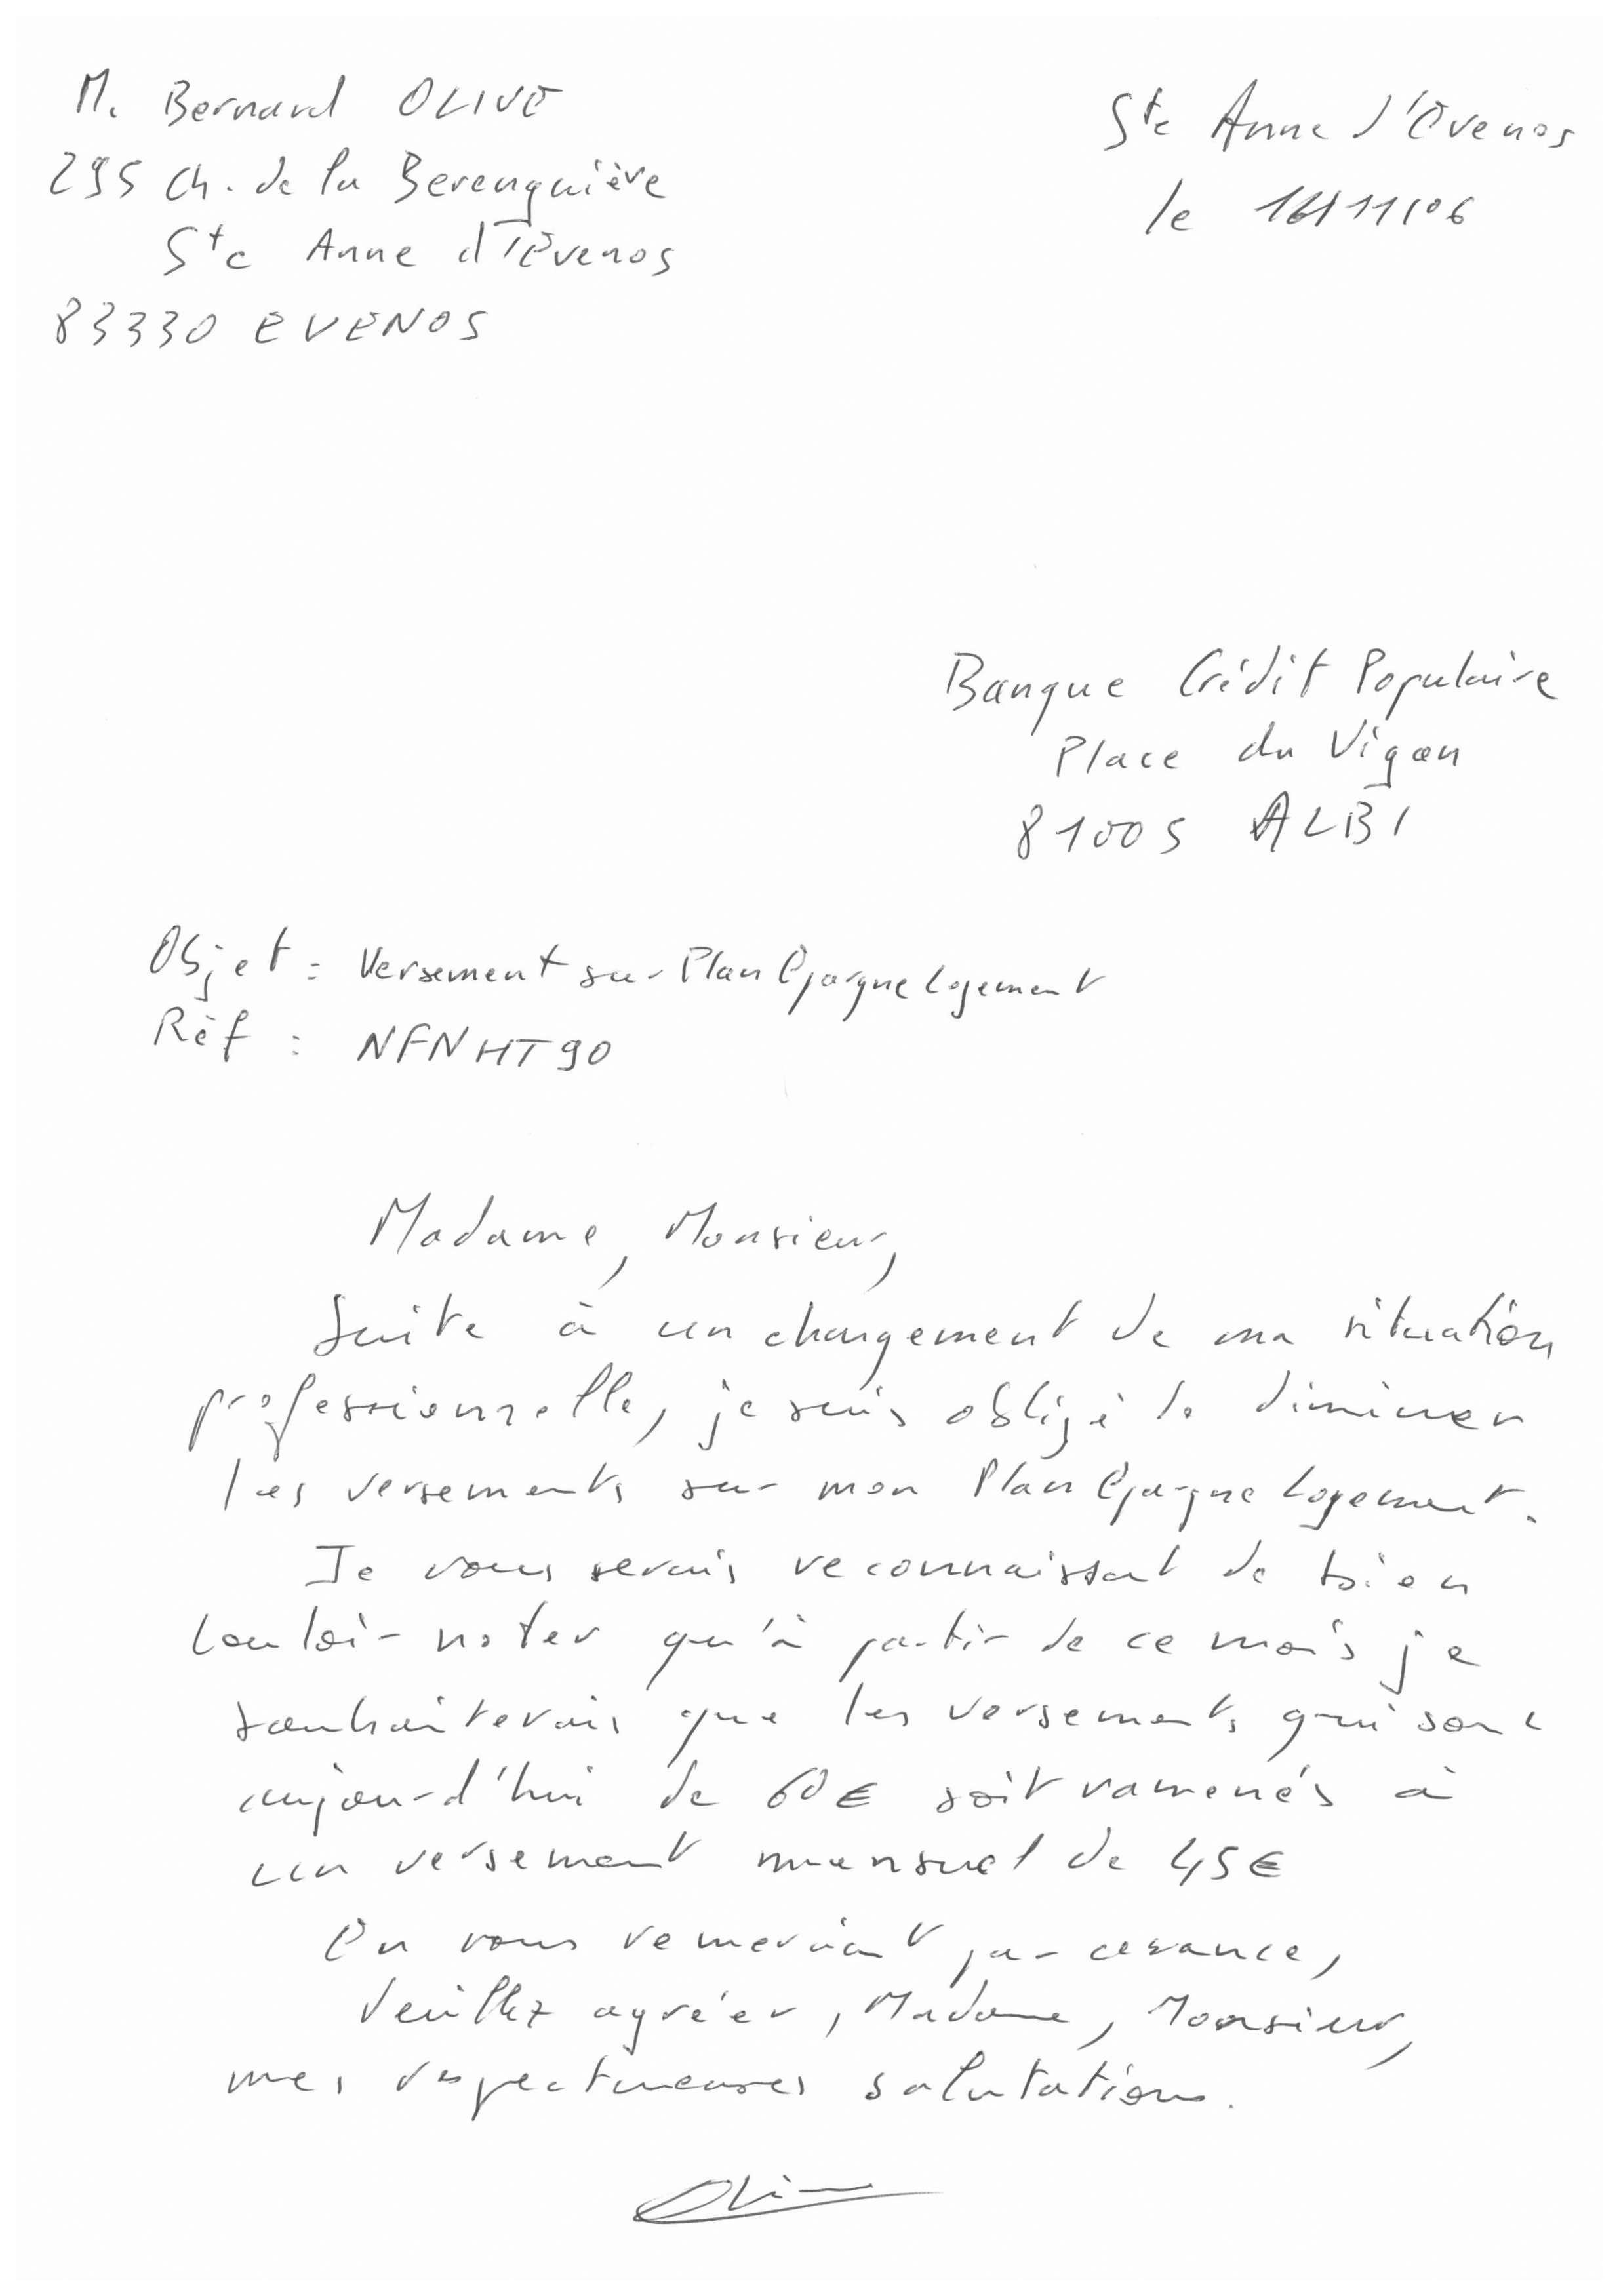 M. Bernard OLIVE
295 Ch. de la Berenguière
Ste Anne d'Evenos
83330 EVENOS
Ste Anne d'Evenos
le 14/11/06
Banque Crédit Populaire
Place du Vigan
81005 ALBI
Objet : Versement sur Plan Epargne Logement
Réf : NFNHT90
Madame, Monsieur,
Suite à un changement de ma situation
professionnelle, je suis obligé de diminuer
les versements sur mon Plan Epargne Logement.
Je vous serais reconnaissant de bien
vouloir noter qu'à partir de ce mois je
souhaiterais que les versements qui sont
aujourd'hui de 60€ soit ramenés à
un versement mensuel de 45€
En vous remerciant par avance,
Veuillez agréer, Madame, Monsieur,
mes respectueuses salutations.
Olive